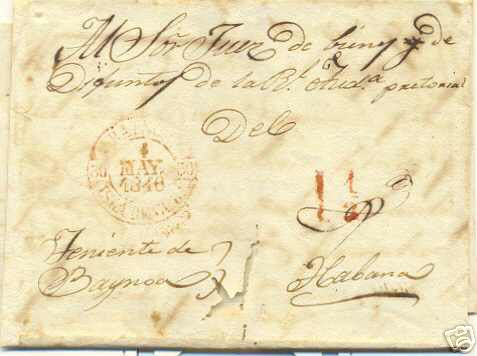 Al Sōr Juez de bienˢ de
Difuntos de la Rˡ Audᵃ pretorial
Del
4
MAY.
1846
Teniente de
Baynoa
Habana